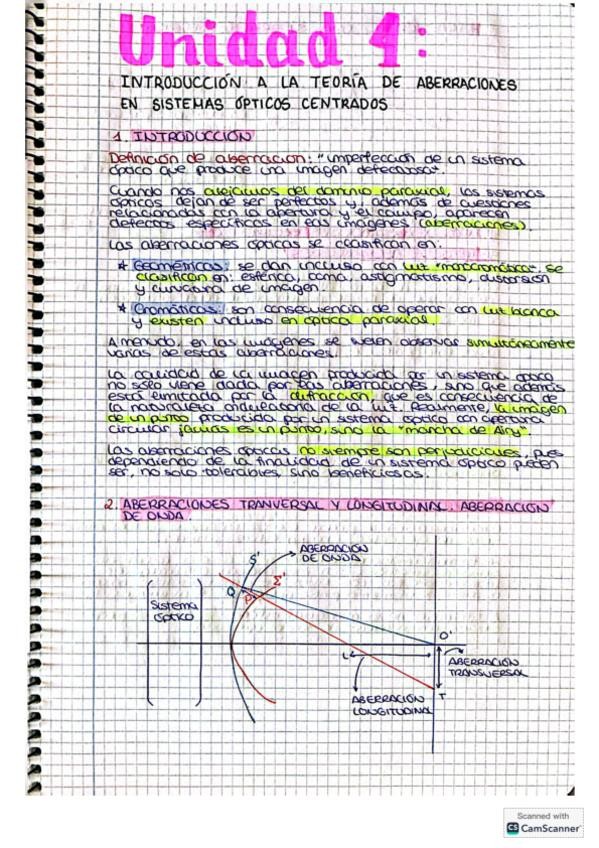 Unidad 4:
INTRODUCCIÓN A LA TEORÍA DE ABERRACIONES
EN SISTEMAS ÓPTICOS CENTRADOS
1. INTRODUCCIÓN
Definición de aberración: "imperfección de un sistema
óptico que produce una imagen defectuosa".
Cuando nos alejamos del dominio paraxial, los sistemas
ópticos dejan de ser perfectos y, además de cuestiones
relacionadas con la apertura y el campo, aparecen
defectos específicos en las imágenes (aberraciones).
Las aberraciones ópticas se clasifican en:
* Geométricas: se dan incluso con luz "monocromática". Se
clasifican en: esférica, coma, astigmatismo, distorsión
y curvatura de imagen.
* Cromáticas: son consecuencia de operar con luz blanca
y existen incluso en óptica paraxial.
A menudo, en las imágenes se suelen observar simultáneamente
varias de estas aberraciones.
La calidad de la imagen producida por un sistema óptico
no sólo viene dada por las aberraciones, sino que además
está limitada por la difracción, que es consecuencia de
la naturaleza ondulatoria de la luz. Realmente, la imagen
de un punto producida por un sistema óptico con apertura
circular jamás es un punto, sino la "mancha de Airy".
Las aberraciones ópticas no siempre son perjudiciales, pues
dependiendo de la finalidad de un sistema óptico pueden
ser, no solo tolerables, sino beneficiosas.
2. ABERRACIONES TRANVERSAL Y LONGITUDINAL. ABERRACIÓN
DE ONDA.
S'
ABERRACIÓN
DE ONDA
Σ'
Q
P
Sistema
óptico
O'
L
ABERRACIÓN
TRANSVERSAL
T
ABERRACIÓN
LONGITUDINAL
Scanned with
CS CamScanner